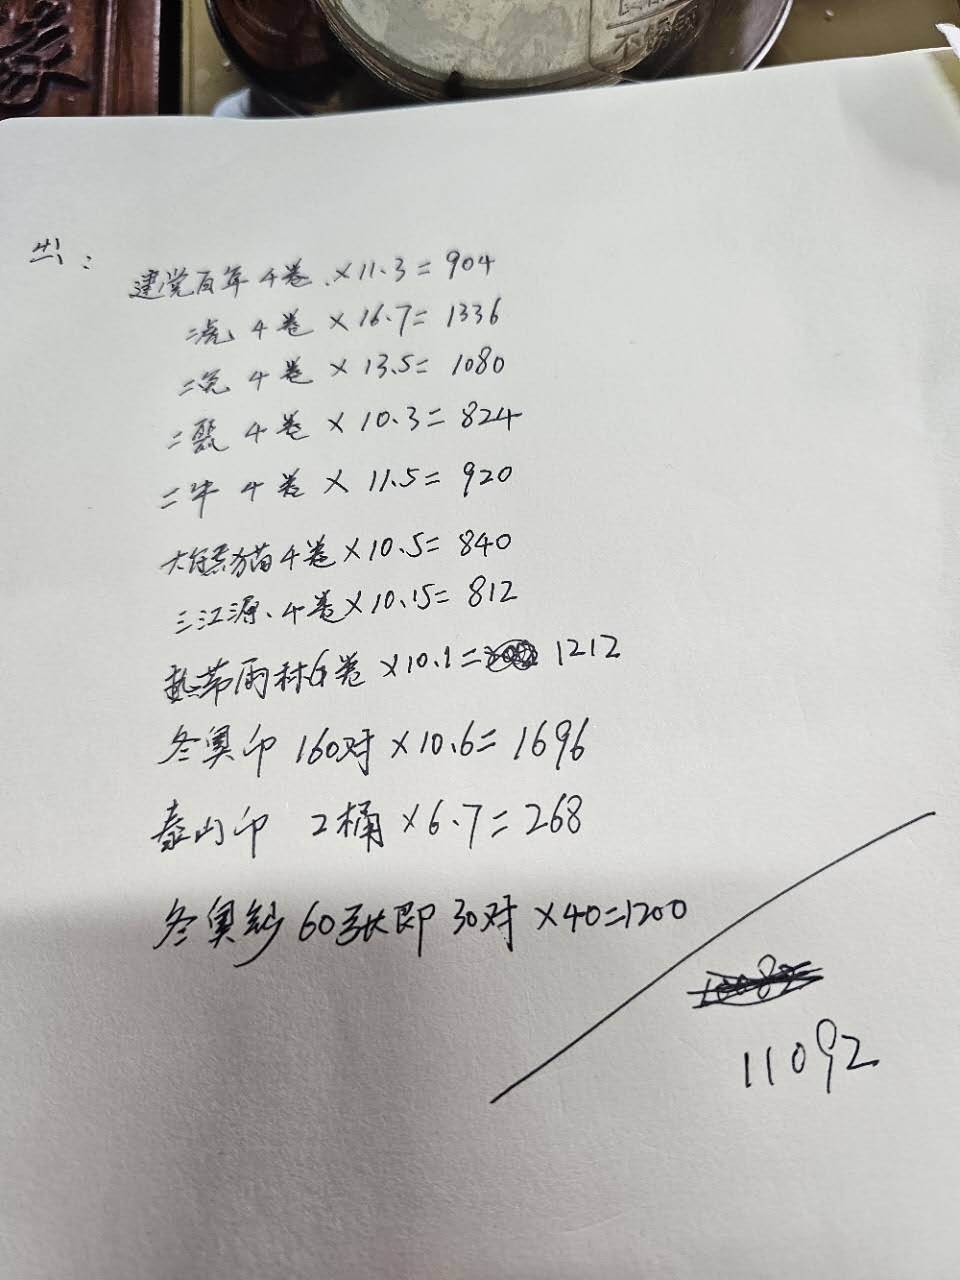 不锈钢
出：
建党百年 4卷 × 11.3 = 904
二虎 4卷 × 16.7 = 1336
二兔 4卷 × 13.5 = 1080
二龍 4卷 × 10.3 = 824
二牛 4卷 × 11.5 = 920
大熊猫 4卷 × 10.5 = 840
三江源、4卷 × 10.15 = 812
热带雨林 6卷 × 10.1 = 1212
冬奥印 160对 × 10.6 = 1696
泰山印 2桶 × 6.7 = 268
冬奥钞 60张即 30对 × 40 = 1200
11092